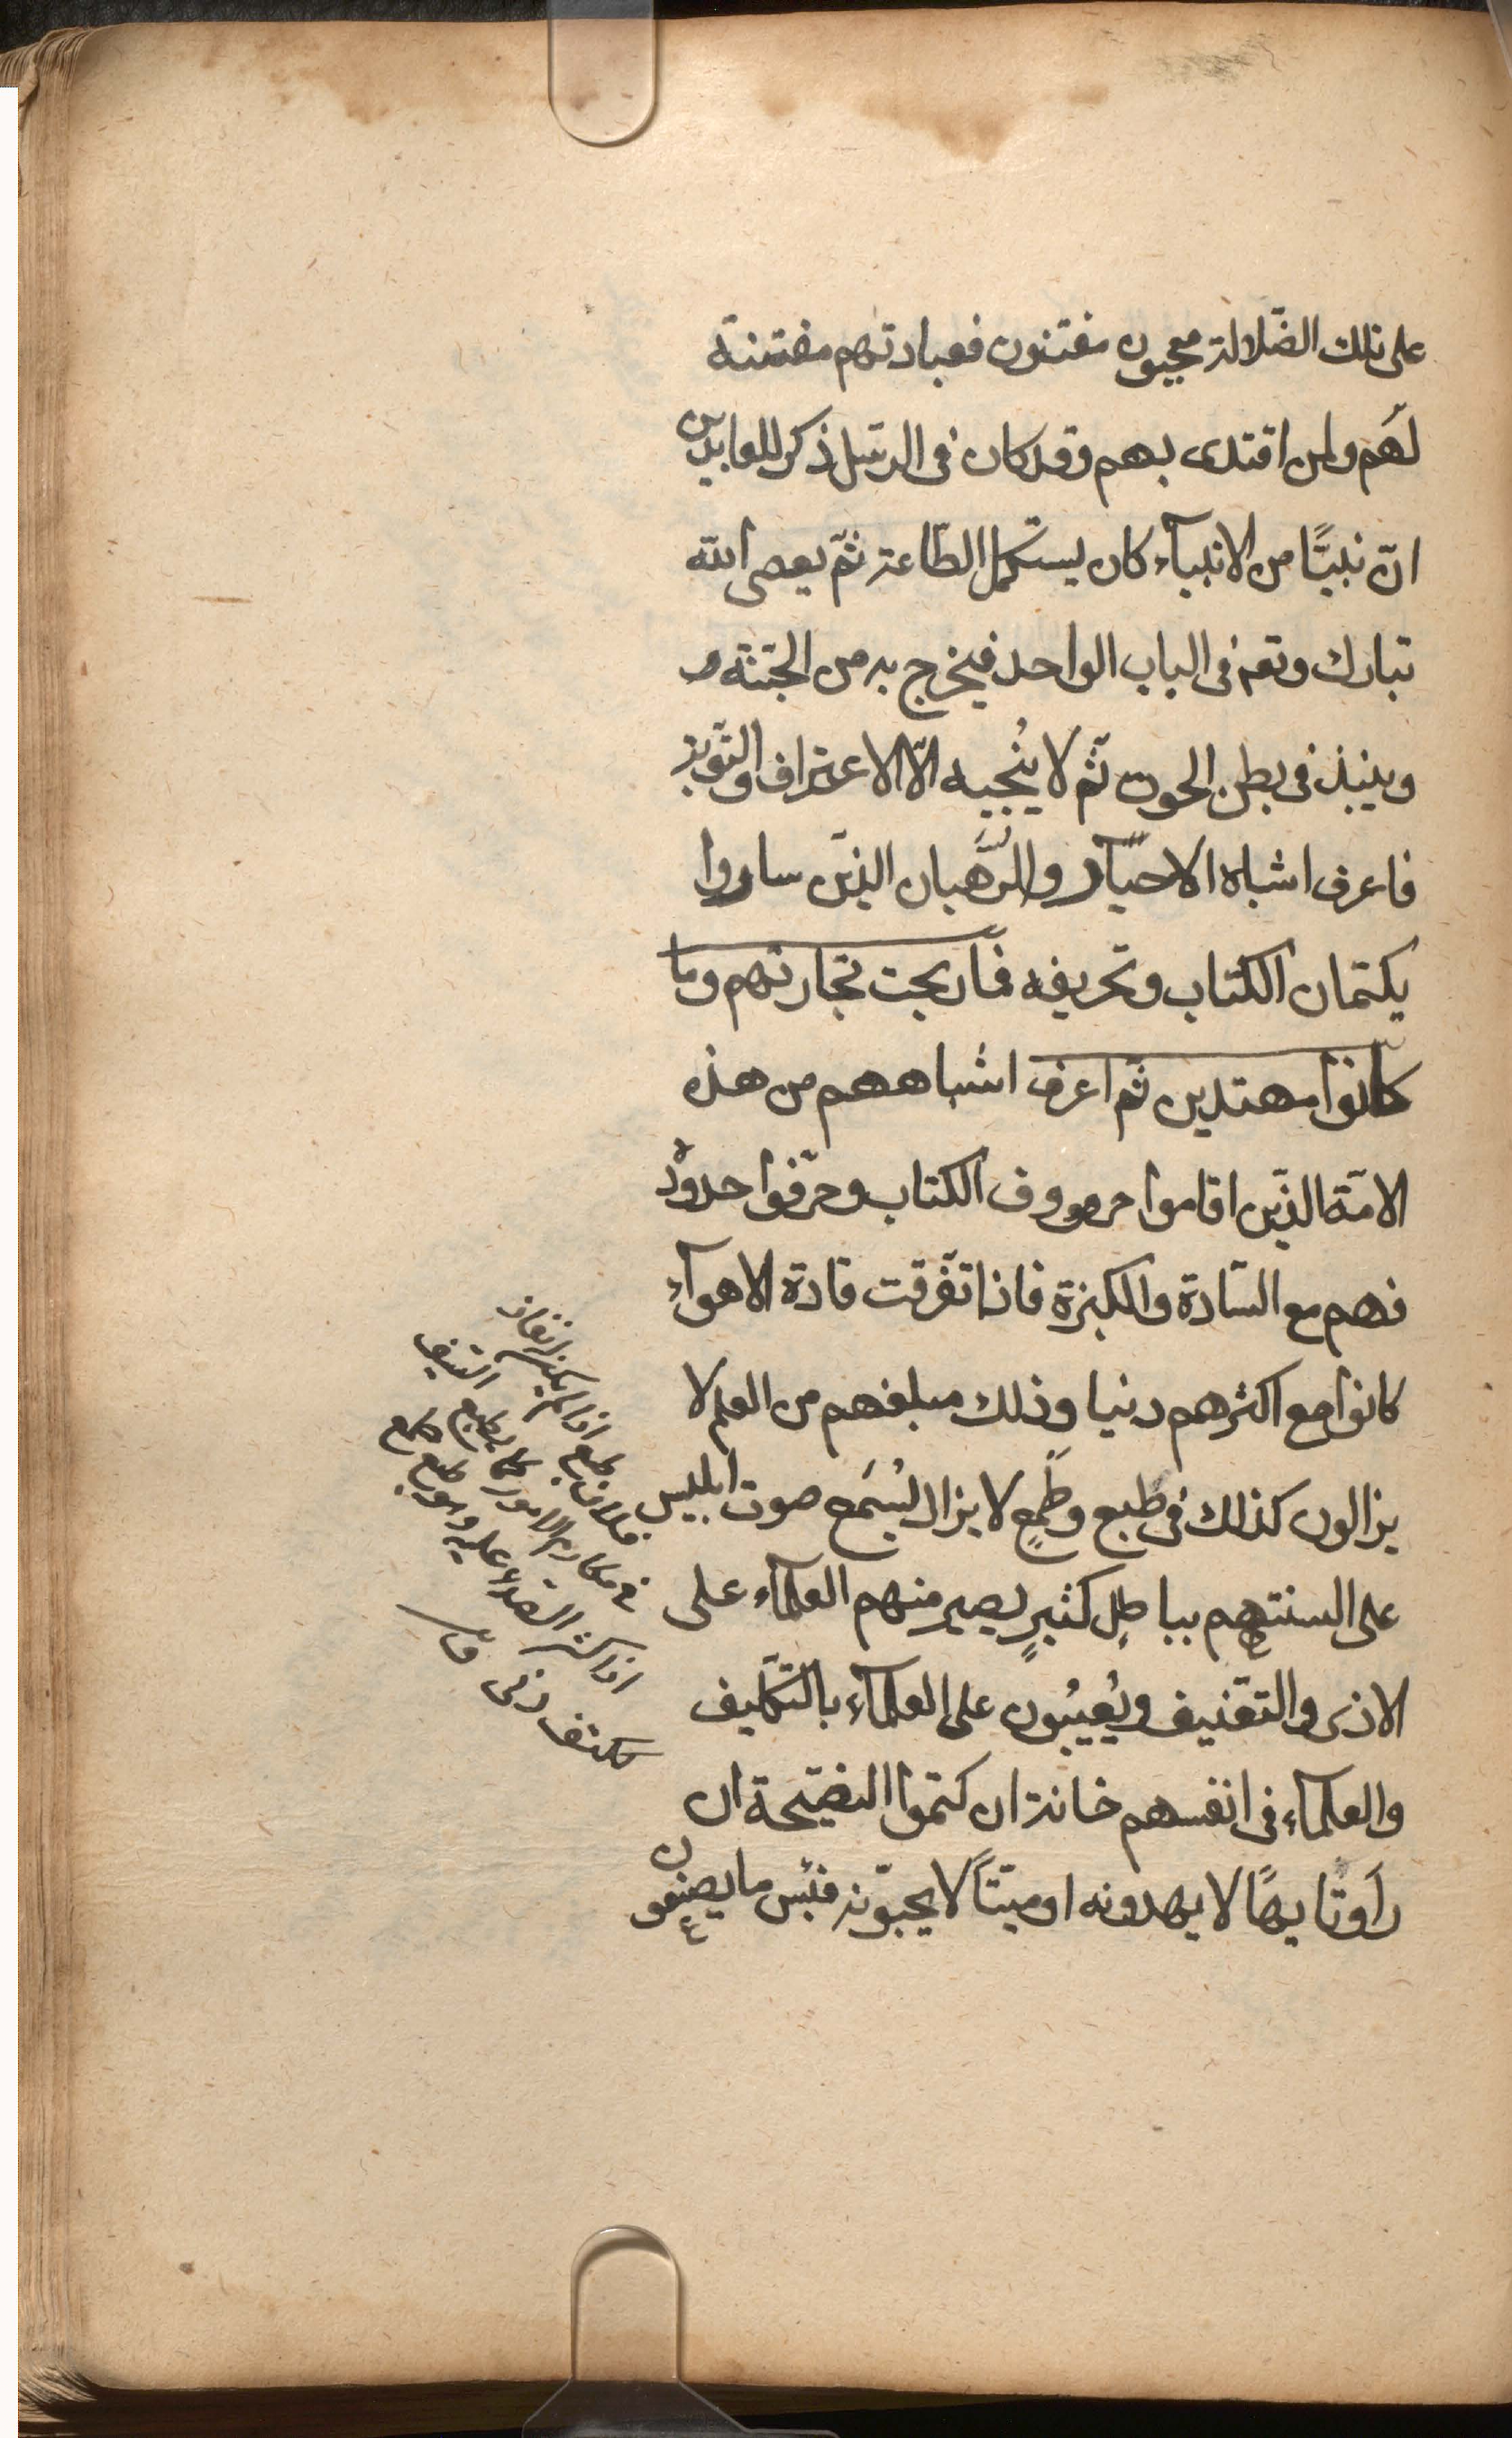 على تلك الضّلالة معجبون مفتنون فعبادتهم مفتنة
لهم ولمن اقتدى بهم وقد كان فى الرسل ذكر للعابدين
انّ نبيًّا من الانبيآء كان يستكمل الطّاعة ثمّ يعصى الله
تبارك وتعم فى الباب الواحد فيخرج به من الجنّة و
وينبذ فى بطن الحوت ثمّ لا يُنجيه الّا الاعتراف والتّوبة
فاعرف اشباه الاحبار والرّهبان الذين ساروا
بكتمان الكتاب وتحريفه فما ربحت تجارتهم وما
كانوا مهتدين ثم اعرف اشباههم من هذه
الامّة الذين اقاموا حروف الكتاب وحرّفوا حدوده
فهم مع السّادة والكبرة فاذا تفرّقت قادة الاهوآء
كانوا مع اكثرهم دنيا وذلك مبلغهم من العلم لا
يزالون كذلك فى طبع وطمعٍ لا يزال يُسمَع صوت ابليس
على السنتهم بباطلٍ كثيرٍ يصير منهم العلمآء على
الاذى والتعنيف ويُعيبُون على العلمآء بالتّكليف
والعلمآء فى انفسهم خانة ان كتموا النصيحة ان
رأوا تايهًا لا يهدونه او ميّتًا لا يحيّونه فبئس ما يصنعون
فلان طبع اذا لم يكن له نفاذ
فى مكارم الامور كما يطبع السّيف
اذا كثر الصّداء عليه وهو طبع طمع